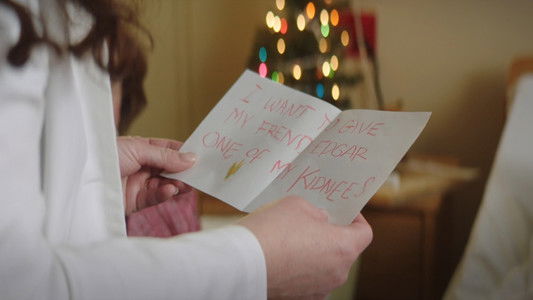 I WANT TO GIVE
MY FRENT EDGAR
ONE OF MY KIDNEES